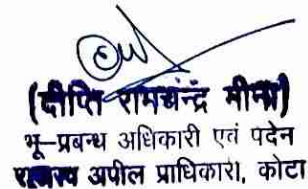 (दीप्ति रामचंद्र मीना)
भू-प्रबन्ध अधिकारी एवं पदेन
राजस्व अपील प्राधिकारी, कोटा